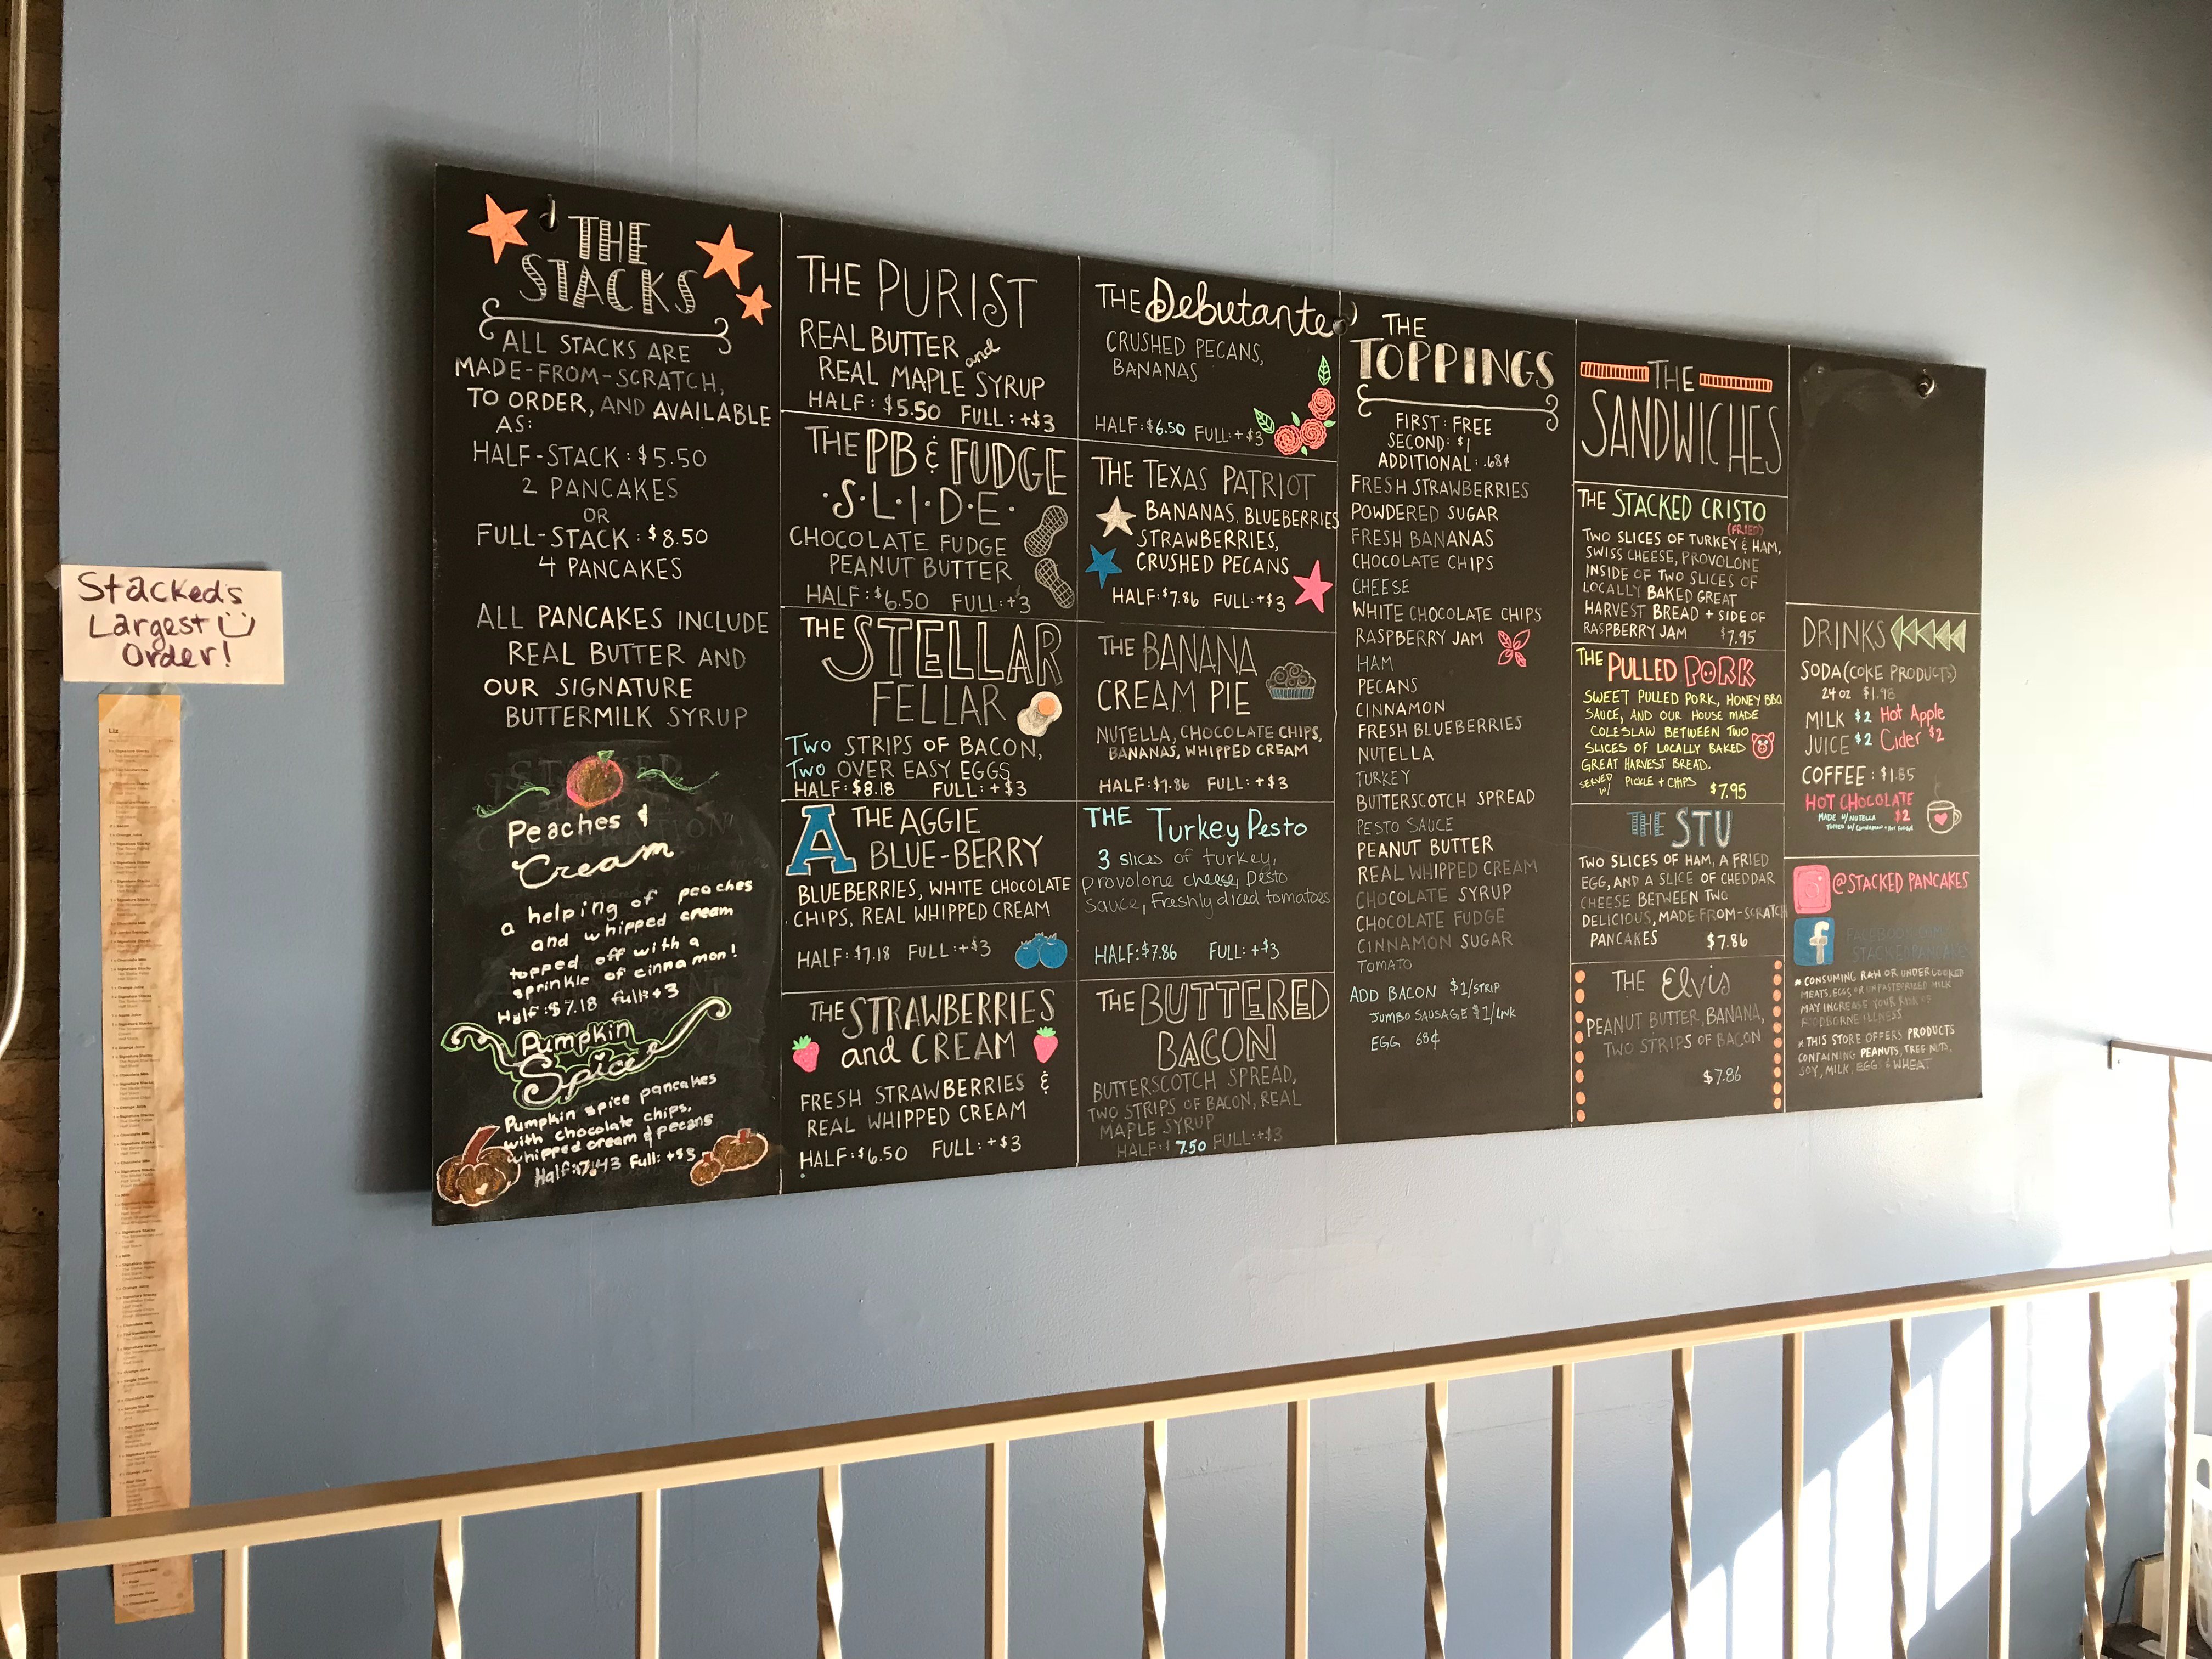 Stacked's
Largest
Order!
Liz
THE
STACKS
ALL STACKS ARE
MADE-FROM-SCRATCH,
TO ORDER, AND AVAILABLE
AS:
HALF-STACK: $5.50
2 PANCAKES
OR
FULL-STACK: $8.50
4 PANCAKES
ALL PANCAKES INCLUDE
REAL BUTTER AND
OUR SIGNATURE
BUTTERMILK SYRUP
Peaches &
Cream
a helping of peaches
and whipped cream
topped off with a
sprinkle of cinnamon!
Half: $7.18 full: +3
Pumpkin
Spice
Pumpkin spice pancakes
with chocolate chips,
whipped cream & pecans
Half: 7.43 Full: +$3
THE PURIST
REAL BUTTER and
REAL MAPLE SYRUP
HALF: $5.50 FULL: +$3
THE PB & FUDGE
·S·L·I·D·E·
CHOCOLATE FUDGE
PEANUT BUTTER
HALF: $6.50 FULL: +3
THE STELLAR
FELLAR
TWO STRIPS OF BACON,
TWO OVER EASY EGGS
HALF: $8.18 FULL: +$3
A THE AGGIE
BLUE-BERRY
BLUEBERRIES, WHITE CHOCOLATE
CHIPS, REAL WHIPPED CREAM
HALF: $7.18 FULL: +$3
THE STRAWBERRIES
and CREAM
FRESH STRAWBERRIES &
REAL WHIPPED CREAM
HALF: $6.50 FULL: +$3
THE Debutante
CRUSHED PECANS,
BANANAS
HALF: $6.50 FULL: +$3
THE TEXAS PATRIOT
BANANAS, BLUEBERRIES
STRAWBERRIES,
CRUSHED PECANS
HALF: $7.86 FULL: +$3
THE BANANA
CREAM PIE
NUTELLA, CHOCOLATE CHIPS,
BANANAS, WHIPPED CREAM
HALF: $7.86 FULL: +$3
THE Turkey Pesto
3 slices of turkey,
provolone cheese, pesto
sauce, freshly diced tomatoes
HALF: $7.86 FULL: +$3
THE BUTTERED
BACON
BUTTERSCOTCH SPREAD,
TWO STRIPS OF BACON, REAL
MAPLE SYRUP
HALF: $ 7.50 FULL: +$3
THE
TOPPINGS
FIRST: FREE
SECOND: $1
ADDITIONAL: .68¢
FRESH STRAWBERRIES
POWDERED SUGAR
FRESH BANANAS
CHOCOLATE CHIPS
CHEESE
WHITE CHOCOLATE CHIPS
RASPBERRY JAM
HAM
PECANS
CINNAMON
FRESH BLUEBERRIES
NUTELLA
TURKEY
BUTTERSCOTCH SPREAD
PESTO SAUCE
PEANUT BUTTER
REAL WHIPPED CREAM
CHOCOLATE SYRUP
CHOCOLATE FUDGE
CINNAMON SUGAR
TOMATO
ADD BACON $1/STRIP
JUMBO SAUSAGE $1/LINK
EGG 68¢
THE
SANDWICHES
THE STACKED CRISTO
(FRIED)
TWO SLICES OF TURKEY & HAM,
SWISS CHEESE, PROVOLONE
INSIDE OF TWO SLICES OF
LOCALLY BAKED GREAT
HARVEST BREAD + SIDE OF
RASPBERRY JAM $7.95
THE PULLED PORK
SWEET PULLED PORK, HONEY BBQ
SAUCE, AND OUR HOUSE MADE
COLESLAW BETWEEN TWO
SLICES OF LOCALLY BAKED
GREAT HARVEST BREAD.
SERVED W/ PICKLE + CHIPS $7.95
THE STU
TWO SLICES OF HAM, A FRIED
EGG, AND A SLICE OF CHEDDAR
CHEESE BETWEEN TWO
DELICIOUS, MADE-FROM-SCRATCH
PANCAKES $7.86
THE Elvis
PEANUT BUTTER, BANANA,
TWO STRIPS OF BACON
$7.86
DRINKS
SODA (COKE PRODUCTS)
24 OZ $1.98
MILK $2 Hot Apple
JUICE $2 Cider $2
COFFEE: $1.85
HOT CHOCOLATE
MADE W/ NUTELLA $2
@STACKED PANCAKES
FACEBOOK.COM
* CONSUMING RAW OR UNDERCOOKED
MEATS, EGGS OR UNPASTEURIZED MILK
MAY INCREASE YOUR RISK OF
FOODBORNE ILLNESS
* THIS STORE OFFERS PRODUCTS
CONTAINING PEANUTS, TREE NUTS,
SOY, MILK, EGG & WHEAT